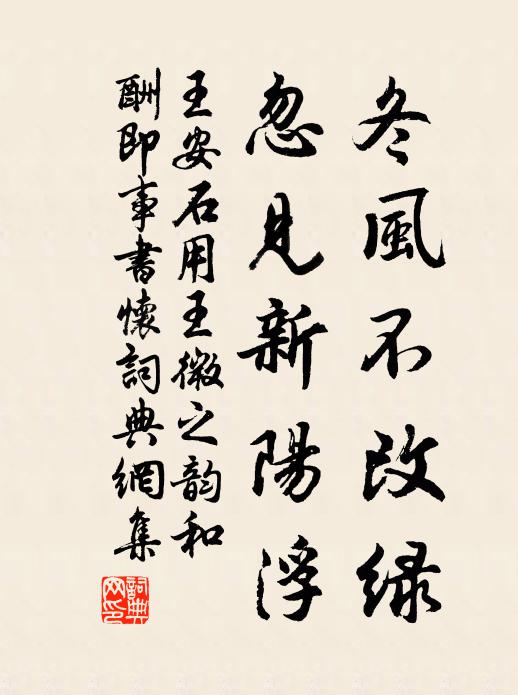 冬風不改綠
忽見新陽浮
王安石用王微之韵和
酬即事書懷詞典網集
詞典網印